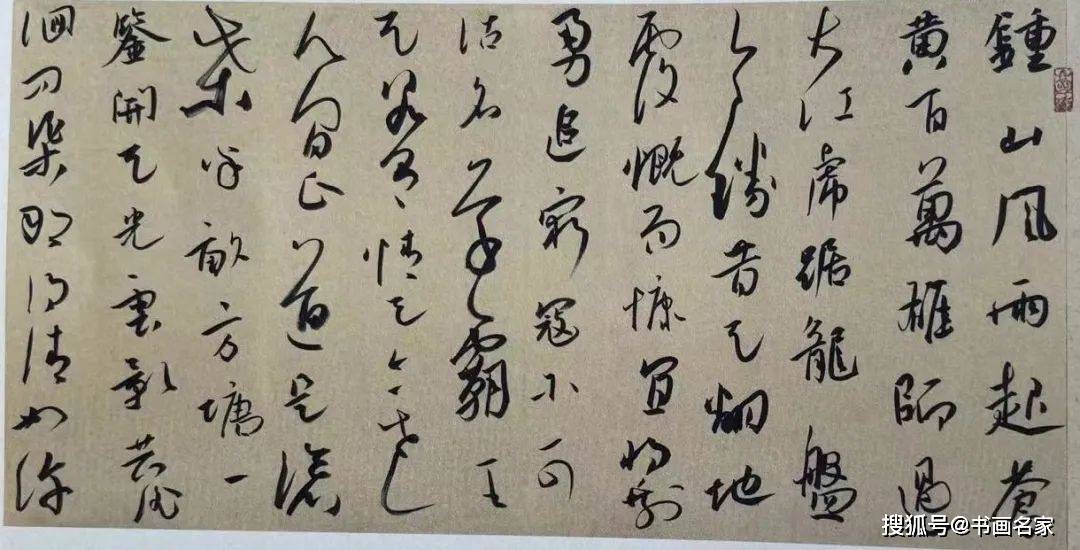 鍾山風雨起蒼
黄百萬雄師過
大江虎踞龍盤
今勝昔天翻地
覆慨而慷宜將剩
勇追窮寇不可
沽名學霸王
天若有情天亦老
人間正道是滄
桑半畝方塘一
鑒開天光雲影共徘
徊問渠那得清如許
搜狐号@书画名家